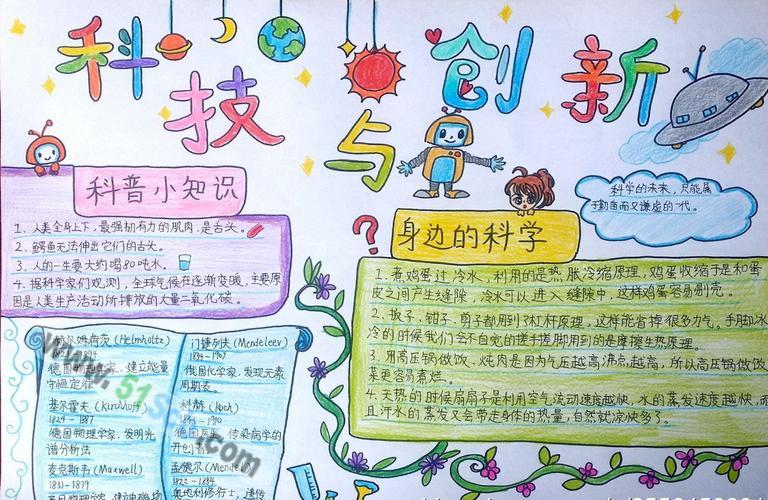 科技与创新
科普小知识
1、人类全身上下，最强韧有力的肌肉，是舌头。
2、鳄鱼无法伸出它们的舌头。
3、人的一生要大约喝80吨水。
4、据科学家们观测，全球气候在逐渐变暖，主要原
因是人类生产活动所排放的大量二氧化碳。
科学的未来，只能属
于勤奋而又谦虚的一代。
身边的科学
1、煮鸡蛋过冷水，利用的是热胀冷缩原理，鸡蛋收缩于是和蛋
皮之间产生缝隙，冷水可以进入缝隙中，这样鸡蛋容易剥壳。
2、扳子、钳子、剪子都用到了杠杆原理，这样能省掉很多力气。手脚冰
冷的时候我们会不自觉的搓手搓脚用到的是摩擦生热原理.
3、用高压锅做饭、炖肉是因为气压越高沸点越高，所以高压锅做饭
菜更容易煮烂。
4、天热的时候扇扇子是利用空气流动速度越快，水的蒸发速度越快，而
且汗水的蒸发又会带走身体的热量，自然就凉快多了。
赫尔姆霍茨(Helmholtz)
德国 学家，建立能量
守恒定律
基尔霍夫(Kirchhoff)
1824-1887
德国物理学家，发明光
谱分析法
麦克斯韦(Maxwell)
1831-1879
门捷列夫(Mendeleev)
1834-1907
俄国化学家，发现元素
周期表。
科赫(Koch)
1843-1910
德国 传染病学的
开创者
孟德尔(Mendel)
1822-1884
奥地利修行士，遗传